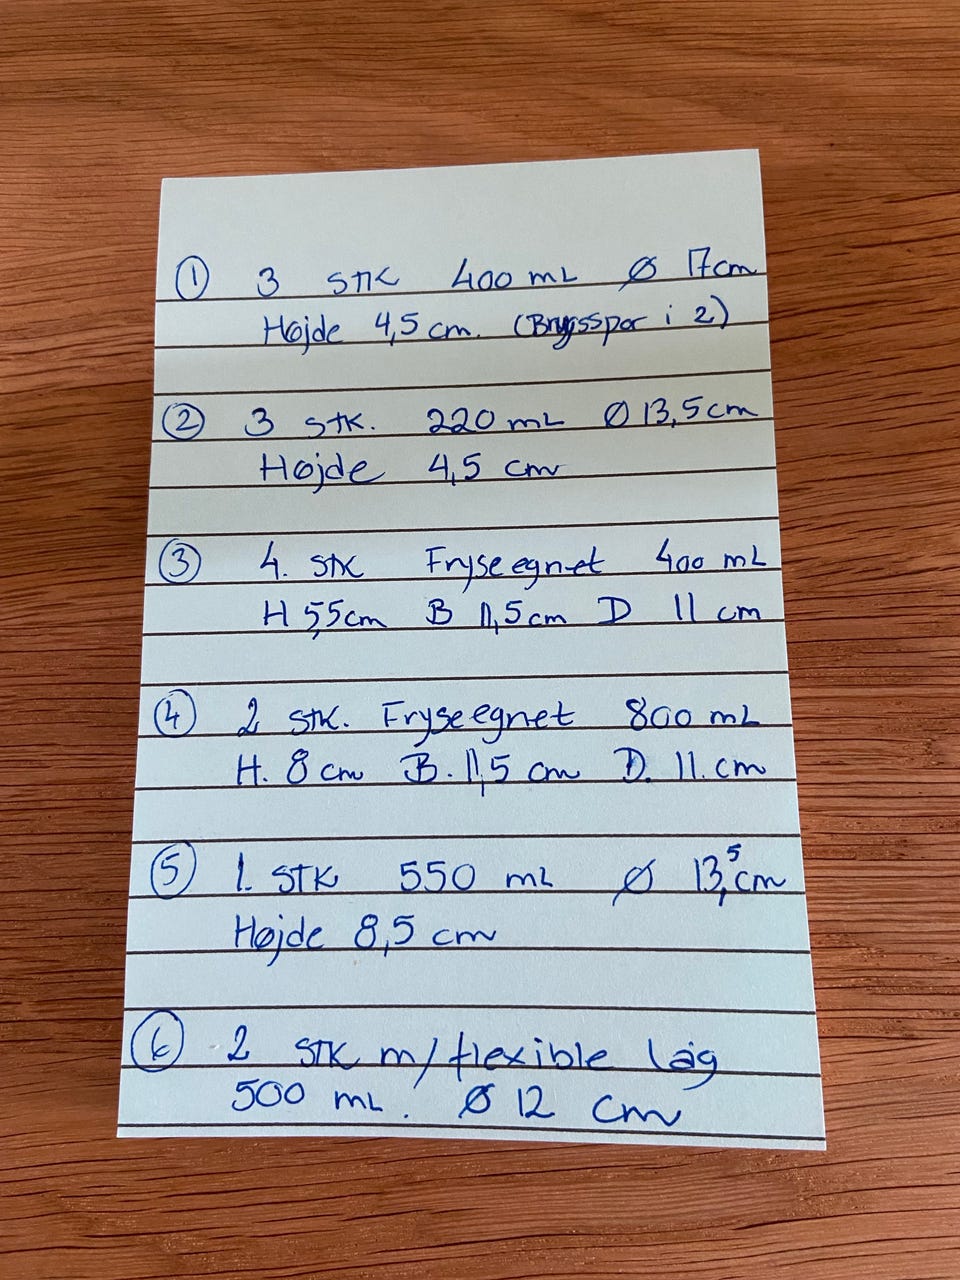 ① 3 STK 400 mL Ø 17cm
Højde 4,5 cm. (Brugsspor i 2)
② 3 STK. 220 mL Ø 13,5cm
Højde 4,5 cm
③ 4. STK Fryseegnet 400 mL
H 5,5cm B 11,5cm D 11 cm
④ 2 STK. Fryseegnet 800 mL
H. 8 cm B. 11,5 cm D. 11. cm
⑤ 1. STK 550 mL Ø 13,5cm
Højde 8,5 cm
⑥ 2 STK m/flexible låg
500 mL. Ø 12 cm